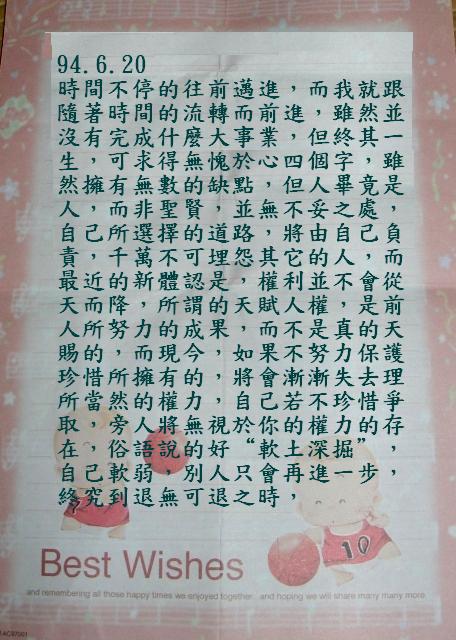 94.6.20
時間不停的往前邁進，而我就跟
隨著時間的流轉而前進，雖然並
沒有完成什麼大事業，但終其一
生，可求得無愧於心，四個字，雖
然擁有無數的缺點，但人畢竟是
人，而非聖賢，並無不妥之處，
自己所選擇的道路，將由自己負
責，千萬不可埋怨其它的人，而
最近的新體認是，權利並不會從
天而降，所謂的天賦人權，是前
人所努力的成果，而不是真的天
賜的，而現今，如果不努力保護
珍惜所擁有的，將會漸漸失去理
所當然的權力，自己若不珍惜爭
取，旁人將無視於你的權力存
在，俗語說的好“軟土深掘”，
自己軟弱，別人只會再進一步，
終究到退無可退之時，
10
Best Wishes
and remembering all those happy times we enjoyed together and hoping we will share many many more